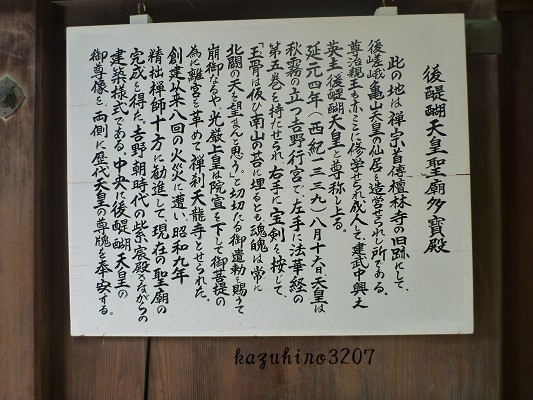 後醍醐天皇聖廟多寳殿
此の地は禅宗首傳檀林寺の旧跡にして、
後嵯峨、亀山天皇の仙居を造営せられし所である。
尊治親王も亦ここに修學せられ成人して、建武中興之
英主後醍醐天皇と尊称し上る。
延元四年(西紀一三三九)八月十六日、天皇は
秋霧の立つ吉野行宮で、左手に法華経の
第五巻を持たせられ右手に宝剣を按じて、
「玉骨は仮ひ南山の苔に埋るとも、魂魄は常に
北闕の天を望まんと思う。」と切々たる御遺勅を賜うて
崩御なるや、光厳上皇は院宣を下して御菩提の
為に離宮を革めて禅刹天龍寺とせられた。
創建以来八回の火災に遭い、昭和九年
精拙禅師十方に勧進して、現在の聖廟の
完成を得た。吉野朝時代の紫宸殿さながらの
建築様式である。中央に後醍醐天皇の
御尊像を、両側に歴代天皇の尊牌を奉安する。
kazuhiro3207